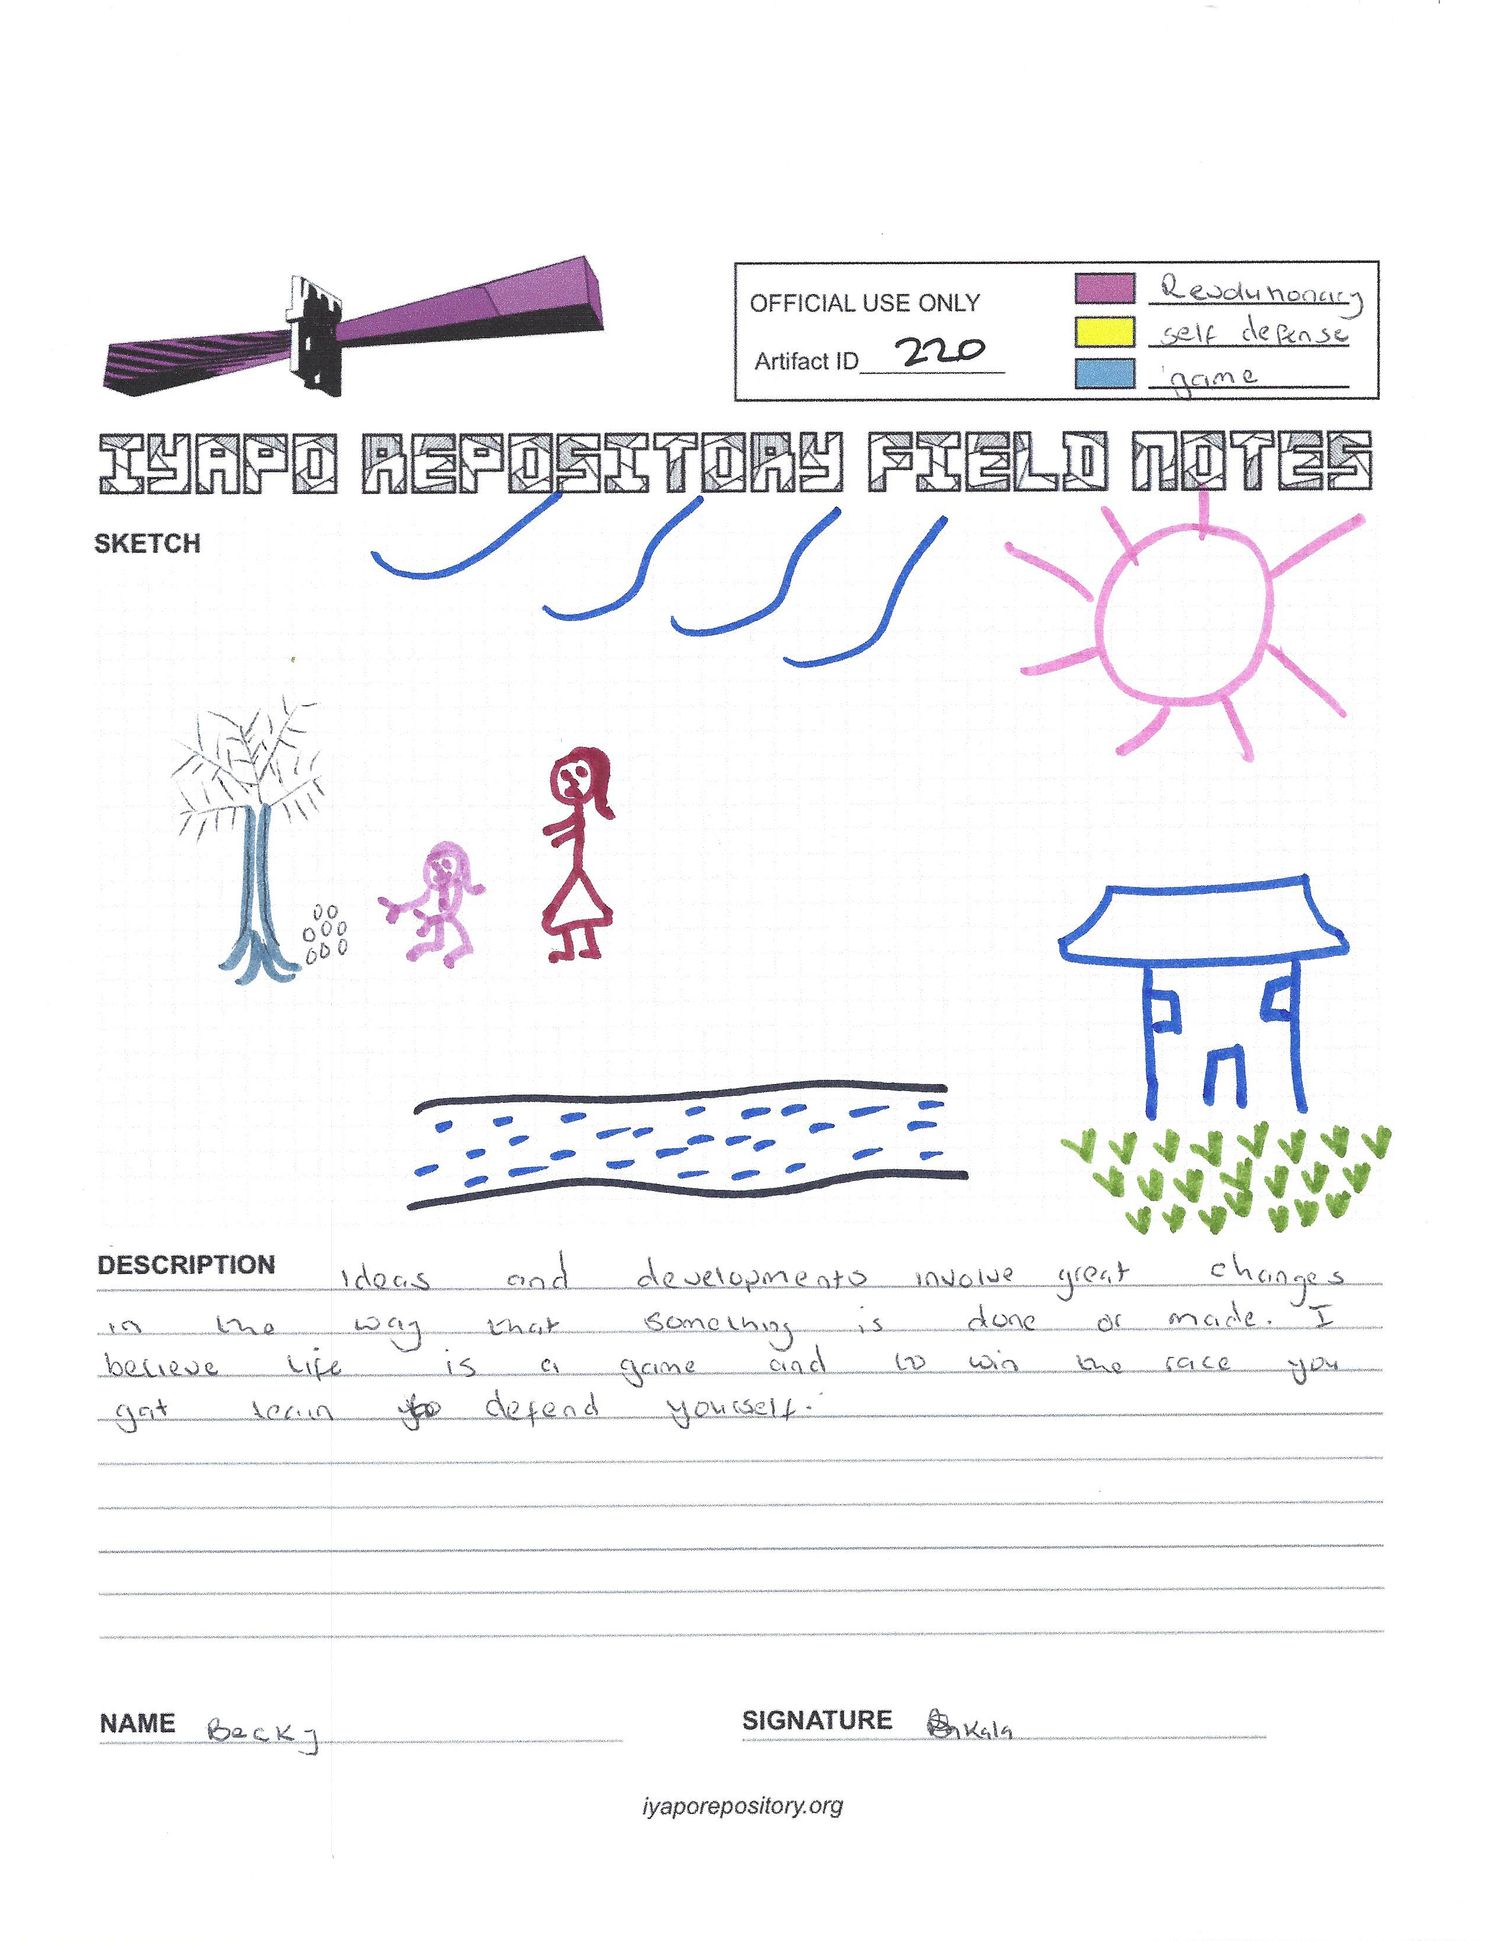 OFFICIAL USE ONLY
Artifact ID 220
Revolutionary
self defense
game
IYAPO REPOSITORY FIELD NOTES
SKETCH
DESCRIPTION Ideas and developments involve great changes
in the way that something is done or made. I
believe life is a game and to win the race you
gat learn to defend yourself.
NAME Becky
SIGNATURE
iyaporepository.org